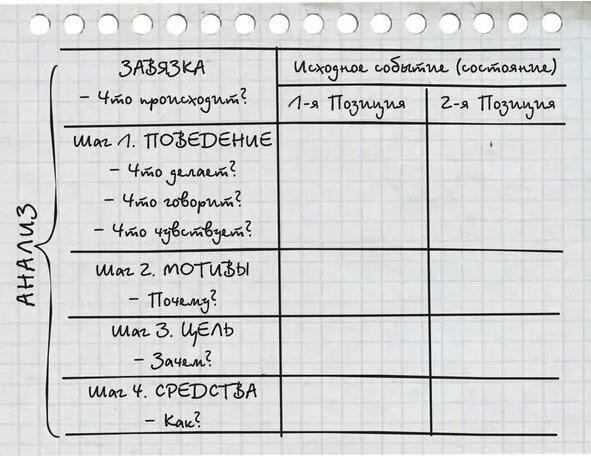 АНАЛИЗ
ЗАВЯЗКА
– Что происходит?
Исходное событие (состояние)
1-я Позиция
2-я Позиция
Шаг 1. ПОВЕДЕНИЕ
– Что делает?
– Что говорит?
– Что чувствует?
Шаг 2. МОТИВЫ
– Почему?
Шаг 3. ЦЕЛЬ
– Зачем?
Шаг 4. СРЕДСТВА
– Как?